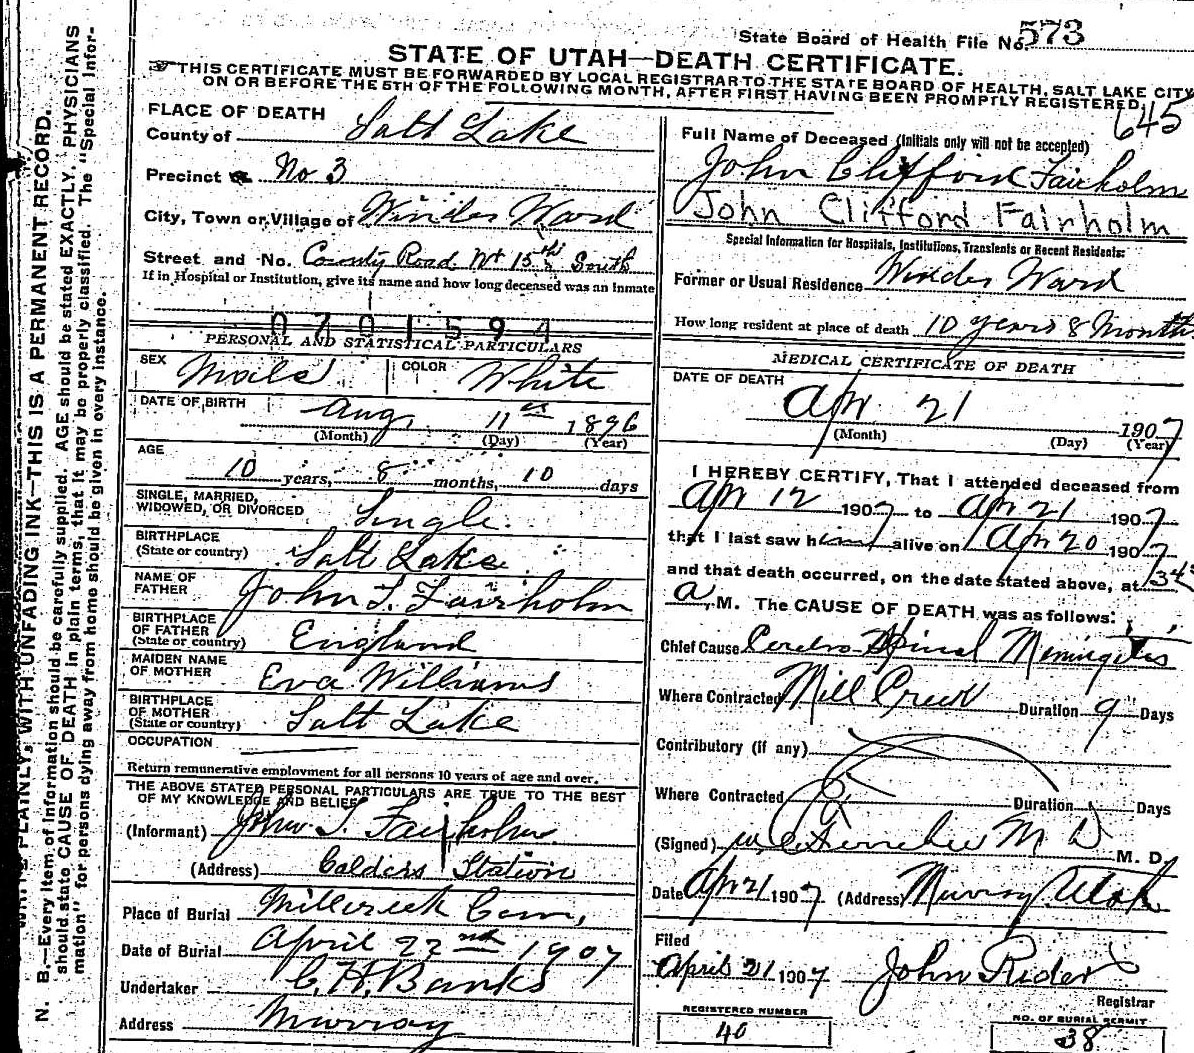 State Board of Health File No. 573
STATE OF UTAH—DEATH CERTIFICATE.
THIS CERTIFICATE MUST BE FORWARDED BY LOCAL REGISTRAR TO THE STATE BOARD OF HEALTH, SALT LAKE CITY
ON OR BEFORE THE 5TH OF THE FOLLOWING MONTH, AFTER FIRST HAVING BEEN PROMPTLY REGISTERED.
645
PLACE OF DEATH
County of Salt Lake
Precinct No 3
City, Town or Village of Winder Ward
Street and No. County Road Nt 15th South
If in Hospital or Institution, give its name and how long deceased was an Inmate
0701594
PERSONAL AND STATISTICAL PARTICULARS
SEX Male COLOR White
DATE OF BIRTH Aug, 11 1896
(Month) (Day) (Year)
AGE
10 years, 8 months, 10 days
SINGLE, MARRIED,
WIDOWED, OR DIVORCED Single
BIRTHPLACE
(State or country) Salt Lake
NAME OF
FATHER John S. Fairholm
BIRTHPLACE
OF FATHER
(State or country) England
MAIDEN NAME
OF MOTHER Eva Williams
BIRTHPLACE
OF MOTHER
(State or country) Salt Lake
OCCUPATION
Return remunerative employment for all persons 10 years of age and over.
THE ABOVE STATED PERSONAL PARTICULARS ARE TRUE TO THE BEST
OF MY KNOWLEDGE AND BELIEF
(Informant) John S. Fairholm
(Address) Calders Station
Place of Burial Millcreek Cem,
Date of Burial April 22nd 1907
Undertaker C. H. Banks
Address Murray
Full Name of Deceased (Initials only will not be accepted)
John Clifford Fairholm
John Clifford Fairholm
Special Information for Hospitals, Institutions, Transients or Recent Residents:
Former or Usual Residence Winder Ward
How long resident at place of death 10 years 8 Months
MEDICAL CERTIFICATE OF DEATH
DATE OF DEATH
Apr 21 1907
(Month) (Day) (Year)
I HEREBY CERTIFY, That I attended deceased from
Apr 12 1907 to Apr 21 1907
that I last saw him alive on Apr 20 1907
and that death occurred, on the date stated above, at
a. M. The CAUSE OF DEATH was as follows:
Chief Cause Cerebro Spinal Meningitis
Where Contracted Mill Creek Duration 9 Days
Contributory (if any)
Where Contracted Duration Days
(Signed) M D M. D.
Date Apr 21 1907 (Address) Murray Utah
Filed
April 21 1907 John Rider
Registrar
REGISTERED NUMBER
40
NO. OF BURIAL PERMIT
38
N. B.—Every item of information should be carefully supplied. AGE should be stated EXACTLY. PHYSICIANS
should state CAUSE OF DEATH in plain terms, that it may be properly classified. The "Special Infor-
mation" for persons dying away from home should be given in every instance.
PLAINLY, WITH UNFADING INK—THIS IS A PERMANENT RECORD.